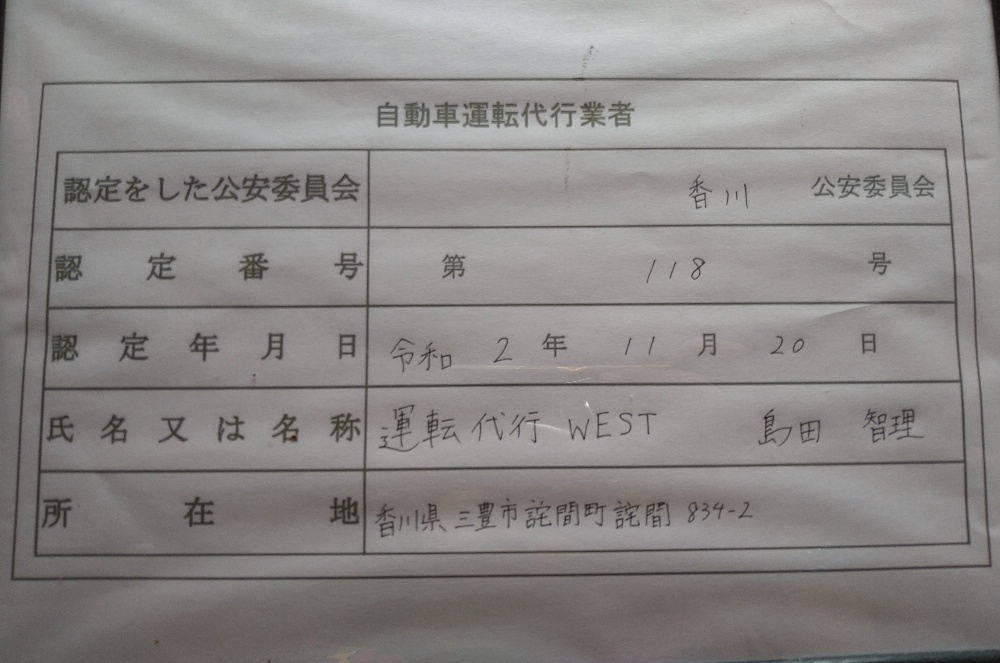 自動車運転代行業者
認定をした公安委員会 香川 公安委員会
認定番号 第 118 号
認定年月日 令和 2 年 11 月 20 日
氏名又は名称 運転代行 WEST 島田 智理
所在地 香川県三豊市詫間町詫間 834-2